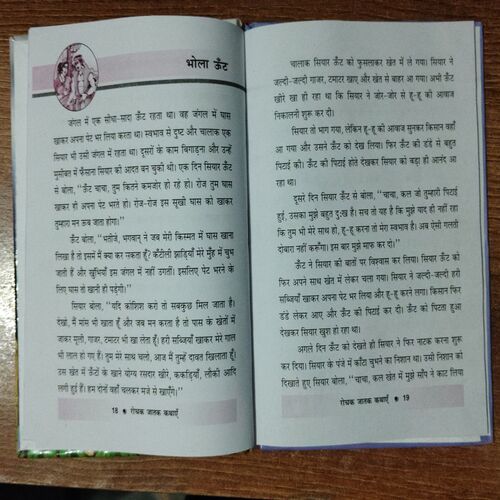 भोला ऊँट
जंगल में एक सीधा-सादा ऊँट रहता था। वह जंगल में घास
खाकर अपना पेट भर लिया करता था। स्वभाव से दुष्ट और चालाक एक
सियार भी उसी जंगल में रहता था। दूसरों के काम बिगाड़ना और उन्हें
मुसीबत में फँसाना सियार की आदत बन चुकी थी। एक दिन सियार ऊँट
से बोला, ‘‘ऊँट चाचा, तुम कितने कमजोर हो रहे हो। रोज तुम घास
खाकर ही अपना पेट भरते हो। रोज-रोज इस सूखी घास को खाकर
तुम्हारा मन ऊब जाता होगा।’’
ऊँट बोला, ‘‘भतीजे, भगवान् ने जब मेरी किस्मत में घास खाना
लिखा है तो इसमें मैं क्या कर सकता हूँ? कँटीली झाड़ियाँ मेरे मुँह में चुभ
जाती हैं और खूभियाँ इस जंगल में नहीं उगतीं। इसलिए पेट भरने के
लिए घास तो खानी ही पड़ेगी।’’
सियार बोला, ‘‘यदि कोशिश करो तो सबकुछ मिल जाता है।
देखो, मैं मांस भी खाता हूँ और जब मन करता है तो पास के खेतों में
जाकर मूली, गाजर, टमाटर भी खा लेता हूँ। हरी सब्जियाँ खाकर मेरे गाल
भी लाल हो गए हैं। तुम मेरे साथ चलो, आज मैं तुम्हें दावत खिलाता हूँ।
उस खेत में ऊँटों के खाने योग्य रसदार खीरे, ककड़ियाँ, लौकी आदि
लगी हुई हैं। हम दोनों वहाँ चलकर मजे से खाएँगे।’’
18 ● रोचक जातक कथाएँ
चालाक सियार ऊँट को फुसलाकर खेत में ले गया। सियार ने
जल्दी-जल्दी गाजर, टमाटर खाए और खेत से बाहर आ गया। अभी ऊँट
खीरे खा ही रहा था कि सियार ने जोर-जोर से हू-हू की आवाज
निकालनी शुरू कर दी।
सियार तो भाग गया, लेकिन हू-हू की आवाज सुनकर किसान वहाँ
आ गया और उसने ऊँट को देख लिया। फिर ऊँट की डंडे से बहुत
पिटाई की। ऊँट की पिटाई होते देखकर सियार को बड़ा ही आनंद आ
रहा था।
दूसरे दिन सियार ऊँट से बोला, ‘‘चाचा, कल जो तुम्हारी पिटाई
हुई, उसका मुझे बहुत दुःख है। सच तो यह है कि मुझे याद ही नहीं रहा
कि तुम भी मेरे साथ हो, हू-हू करना तो मेरा स्वभाव है। अब ऐसी गलती
दोबारा नहीं करूँगा। इस बार मुझे माफ कर दो।’’
ऊँट ने सियार की बातों पर विश्वास कर लिया। सियार ऊँट को
फिर अपने साथ खेत में लेकर चला गया। सियार ने जल्दी-जल्दी हरी
सब्जियाँ खाकर अपना पेट भर लिया और हू-हू करने लगा। किसान फिर
डंडे लेकर आए और ऊँट की पिटाई कर दी। ऊँट को पिटता हुआ
देखकर सियार खुश हो रहा था।
अगले दिन ऊँट को देखते ही सियार ने फिर नाटक करना शुरू
कर दिया। सियार के पंजे में काँटा चुभने का निशान था। उसी निशान को
दिखाते हुए सियार बोला, ‘‘चाचा, कल खेत में मुझे साँप ने काट लिया
रोचक जातक कथाएँ ● 19